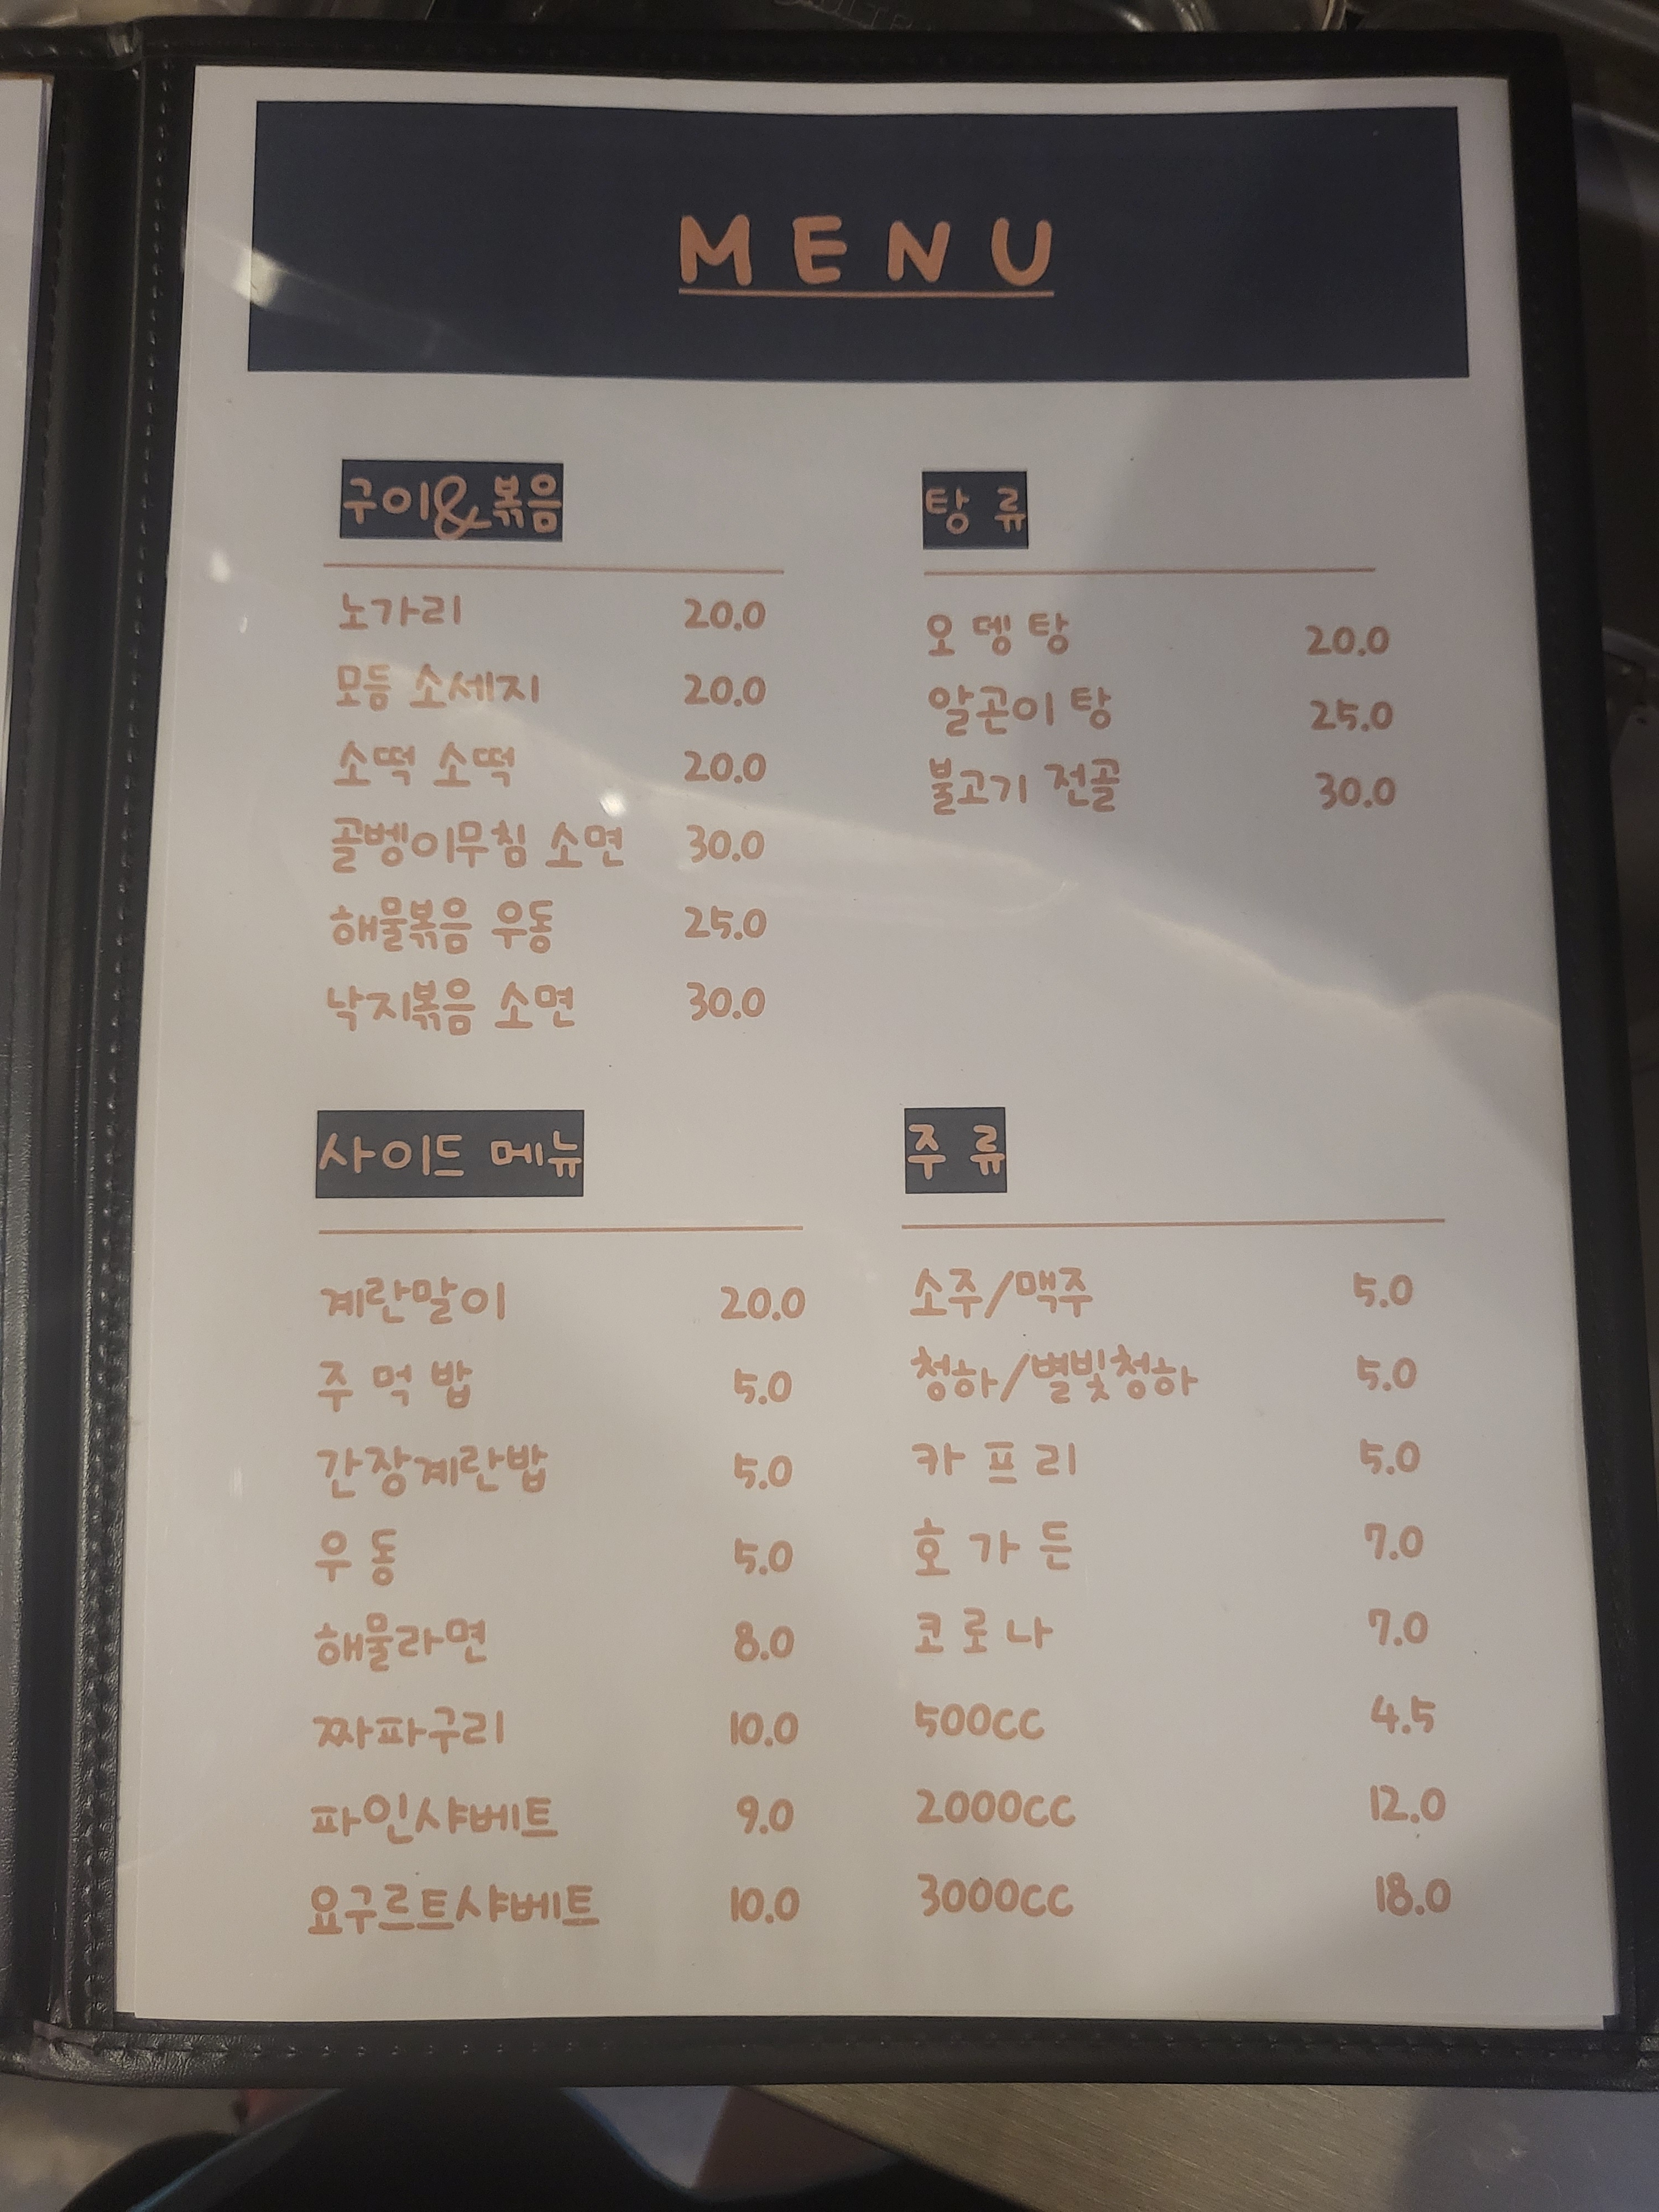 MENU
구이&볶음
노가리 20.0
모듬 소세지 20.0
소떡 소떡 20.0
골벵이무침 소면 30.0
해물볶음 우동 25.0
낙지볶음 소면 30.0
탕 류
오 뎅 탕 20.0
알곤이 탕 25.0
불고기 전골 30.0
사이드 메뉴
계란말이 20.0
주 먹 밥 5.0
간장계란밥 5.0
우 동 5.0
해물라면 8.0
짜파구리 10.0
파인샤베트 9.0
요구르트샤베트 10.0
주 류
소주/맥주 5.0
청하/별빛청하 5.0
카 프 리 5.0
호 가 든 7.0
코 로 나 7.0
500CC 4.5
2000CC 12.0
3000CC 18.0